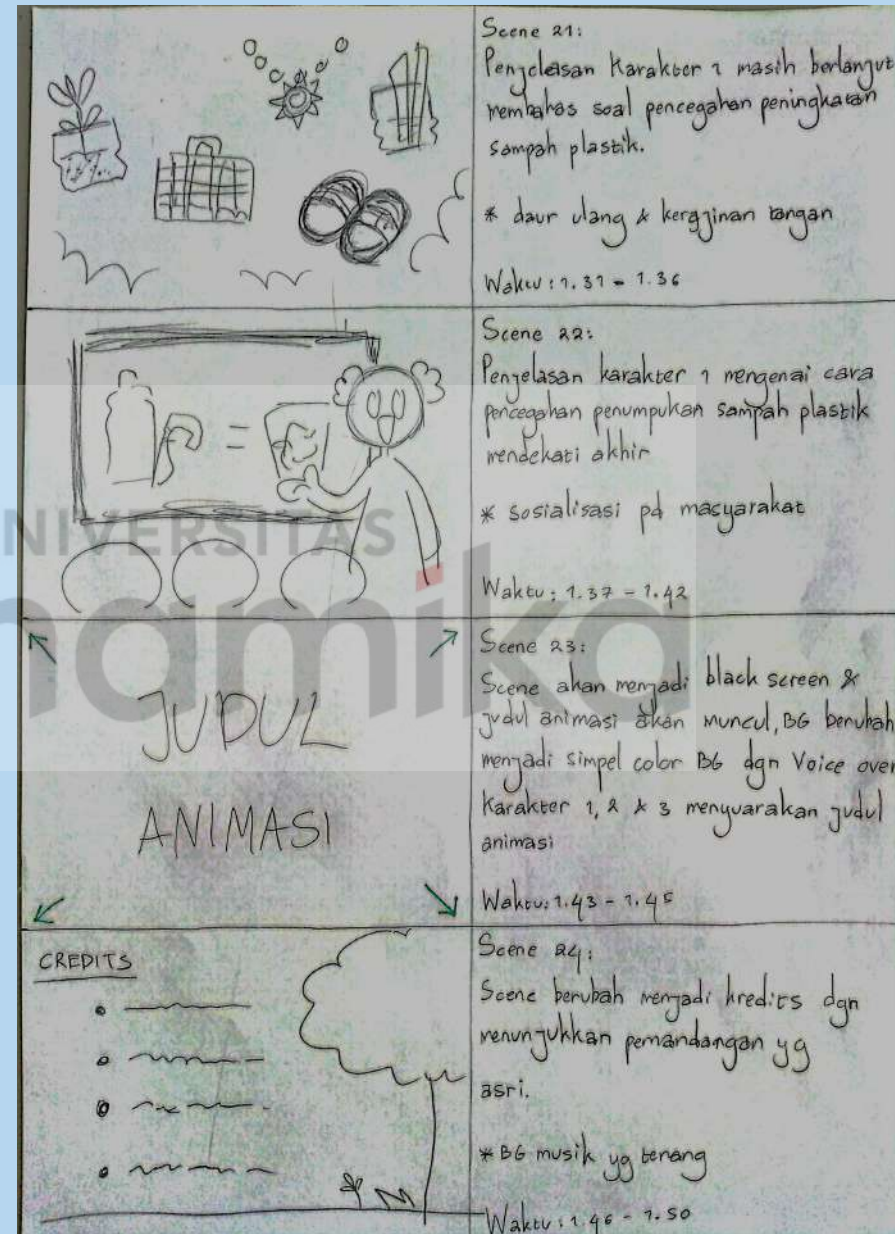 Scene 21:
Penjelasan Karakter 1 masih berlanjut
membahas soal pencegahan peningkatan
sampah plastik.
* daur ulang & kerajinan tangan
Waktu: 1.31 - 1.36
Scene 22:
Penjelasan karakter 1 mengenai cara
pencegahan penumpukan sampah plastik
mendekati akhir
* sosialisasi pd masyarakat
Waktu: 1.37 - 1.42
UNIVERSITAS
namika
JUDUL
ANIMASI
Scene 23:
Scene akan menjadi black screen &
judul animasi akan muncul, BG berubah
menjadi simpel color BG dgn Voice over
Karakter 1, 2 & 3 menyuarakan judul
animasi
Waktu: 1.43 - 1.45
CREDITS
Scene 24:
Scene berubah menjadi kredits dgn
menunjukkan pemandangan yg
asri.
* BG musik yg tenang
Waktu: 1.46 - 1.50